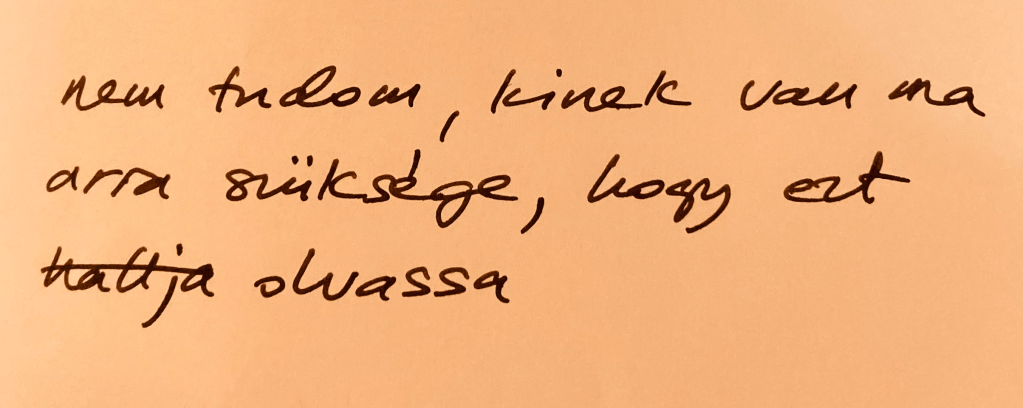 nem tudom, kinek van ma
arra szüksége, hogy ezt
hallja olvassa